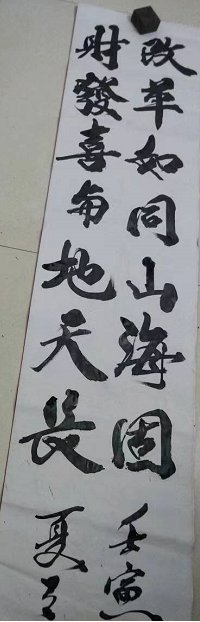 改革如同山海固
財發喜与地天長
壬寅
夏